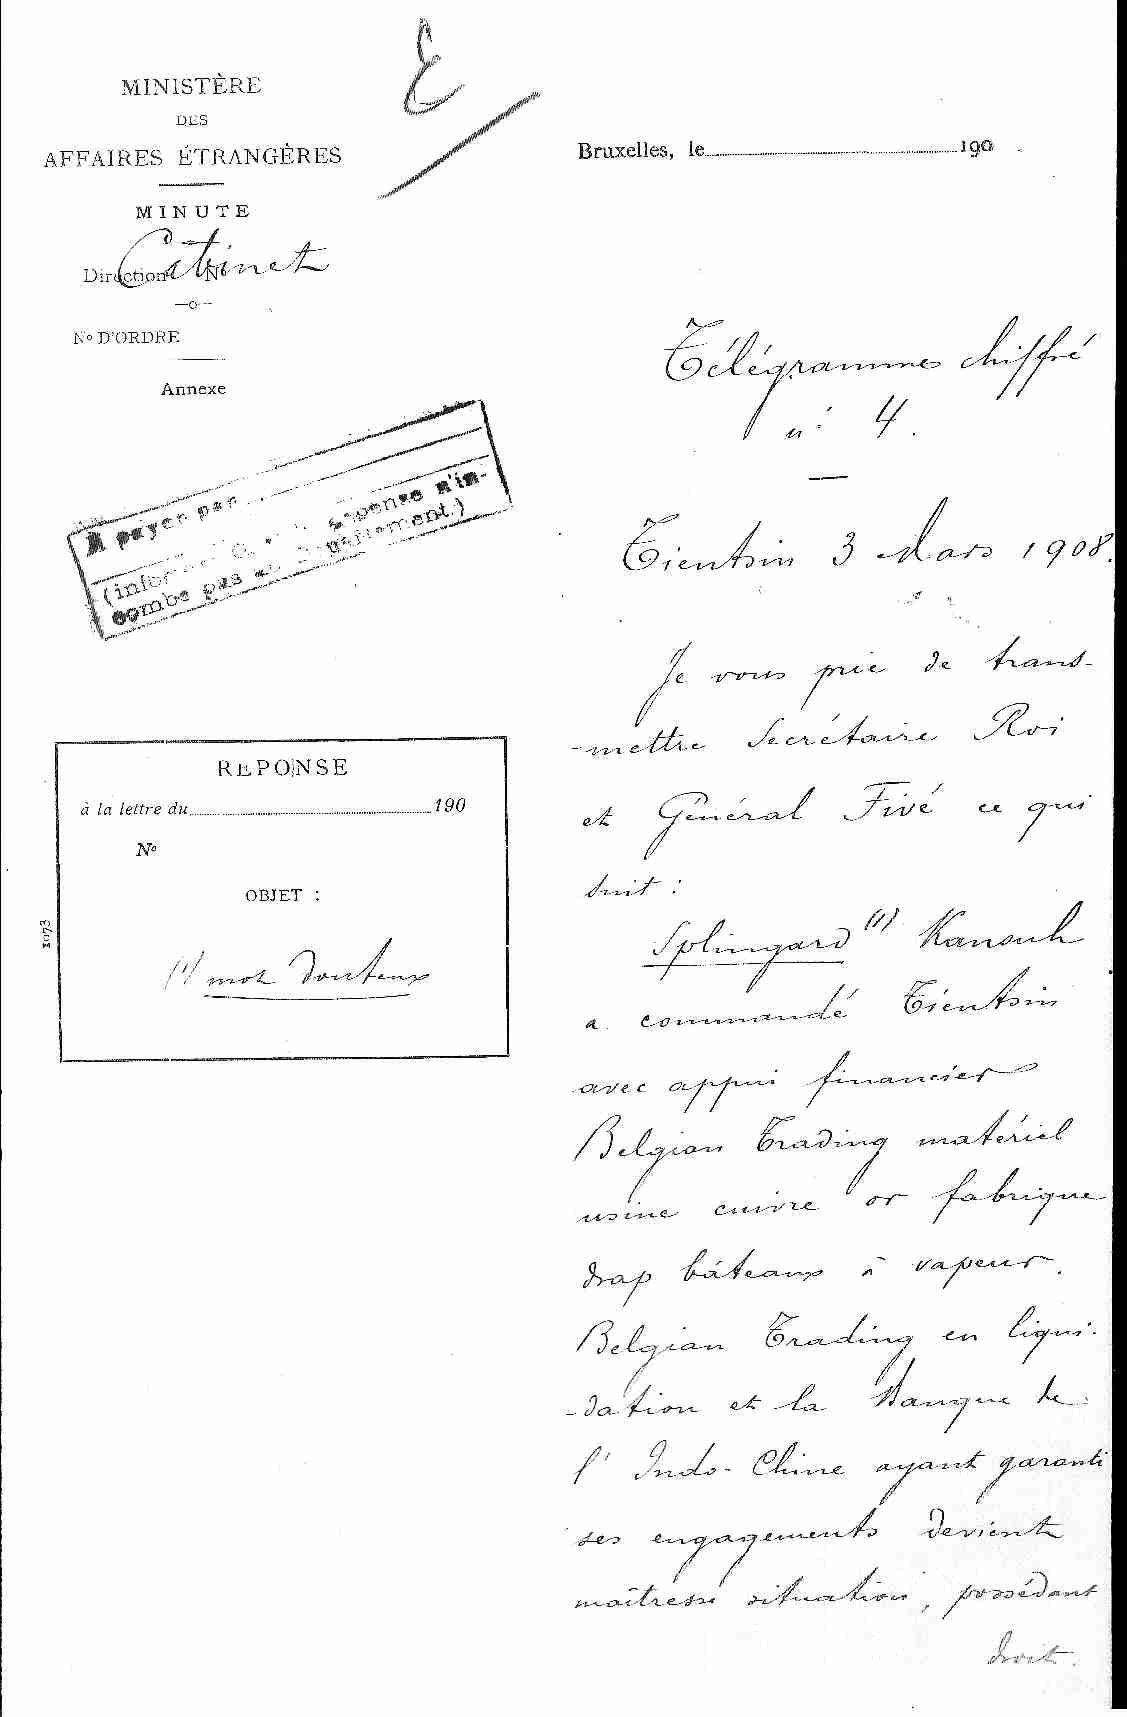 E
MINISTÈRE
DES
AFFAIRES ÉTRANGÈRES
MINUTE
Direction Nº
Cabinet
Nº D'ORDRE
Annexe
A payer par
dépense n'in-
combe pas au département.)
REPONSE
à la lettre du 190
Nº
OBJET :
(1) mot douteux
1073
Bruxelles, le 190
Télégramme chiffré
nº 4.
Tientsin 3 Mars 1908.
Je vous prie de trans-
-mettre Secrétaire Roi
et Général Fivé ce qui
suit :
Splingard (1) Kansuh
a commandé Tientsin
avec appui financier
Belgian Trading matériel
usine cuivre or fabrique
drap bâteaux à vapeur.
Belgian Trading en liqui-
-dation et la Banque de
l'Indo-Chine ayant garanti
ses engagements devient
maîtresse situation, possédant
droit.